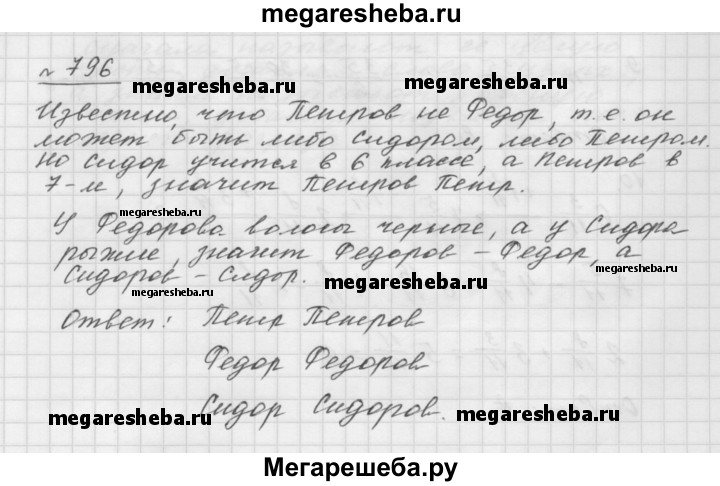 megaresheba.ru
№ 796
megaresheba.ru
megaresheba.ru
Известно, что Петров не Федор, т.е. он
может быть либо Сидором, либо Петром.
Но Сидор учится в 6 классе, а Петров в
7-м, значит Петров Петр.
megaresheba.ru
У Федорова волосы черные, а у Сидора
рыжие, значит Федоров – Федор, а
megaresheba.ru
Сидоров – Сидор.
megaresheba.ru
megaresheba.ru
Ответ: Петр Петров
Федор Федоров
Сидор Сидоров.
megaresheba.ru
megaresheba.ru
Мегарешеба.ру